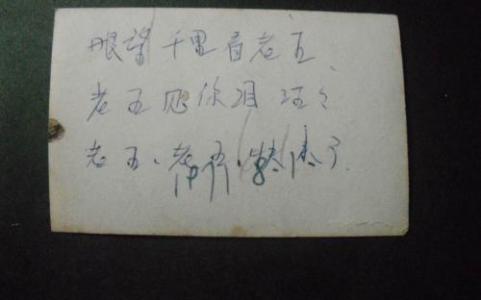 眼望千里看老五、
老五见你泪汪々
老五、老五